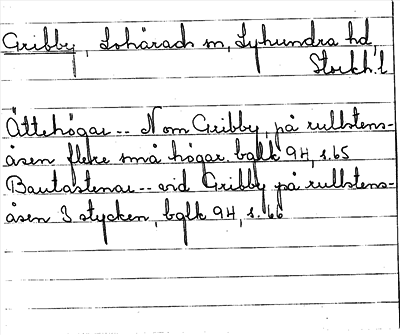 Gribby, Lohärad sn, Lyhundra hd,
Stockh. l.
Ättehögar -- N om Gribby, på rullstens-
åsen flere små högar. bglk 94, s. 65
Bautastenar -- vid Gribby på rullstens-
åsen 3 stycken, bglk 94, s. 66